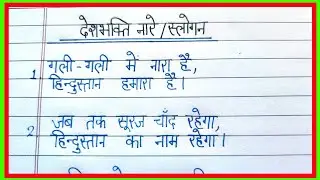 देशभक्ति नारे/स्लोगन
1 गली-गली मे नारा है,
हिन्दुस्तान हमारा है।
2 जब तक सूरज चाँद रहेगा,
हिन्दुस्तान का नाम रहेगा।